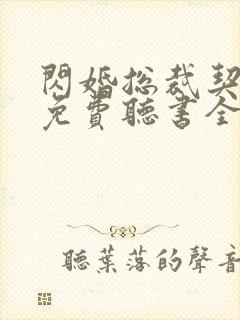 閃婚総裁契
免費聽書全
聽葉落的聲音